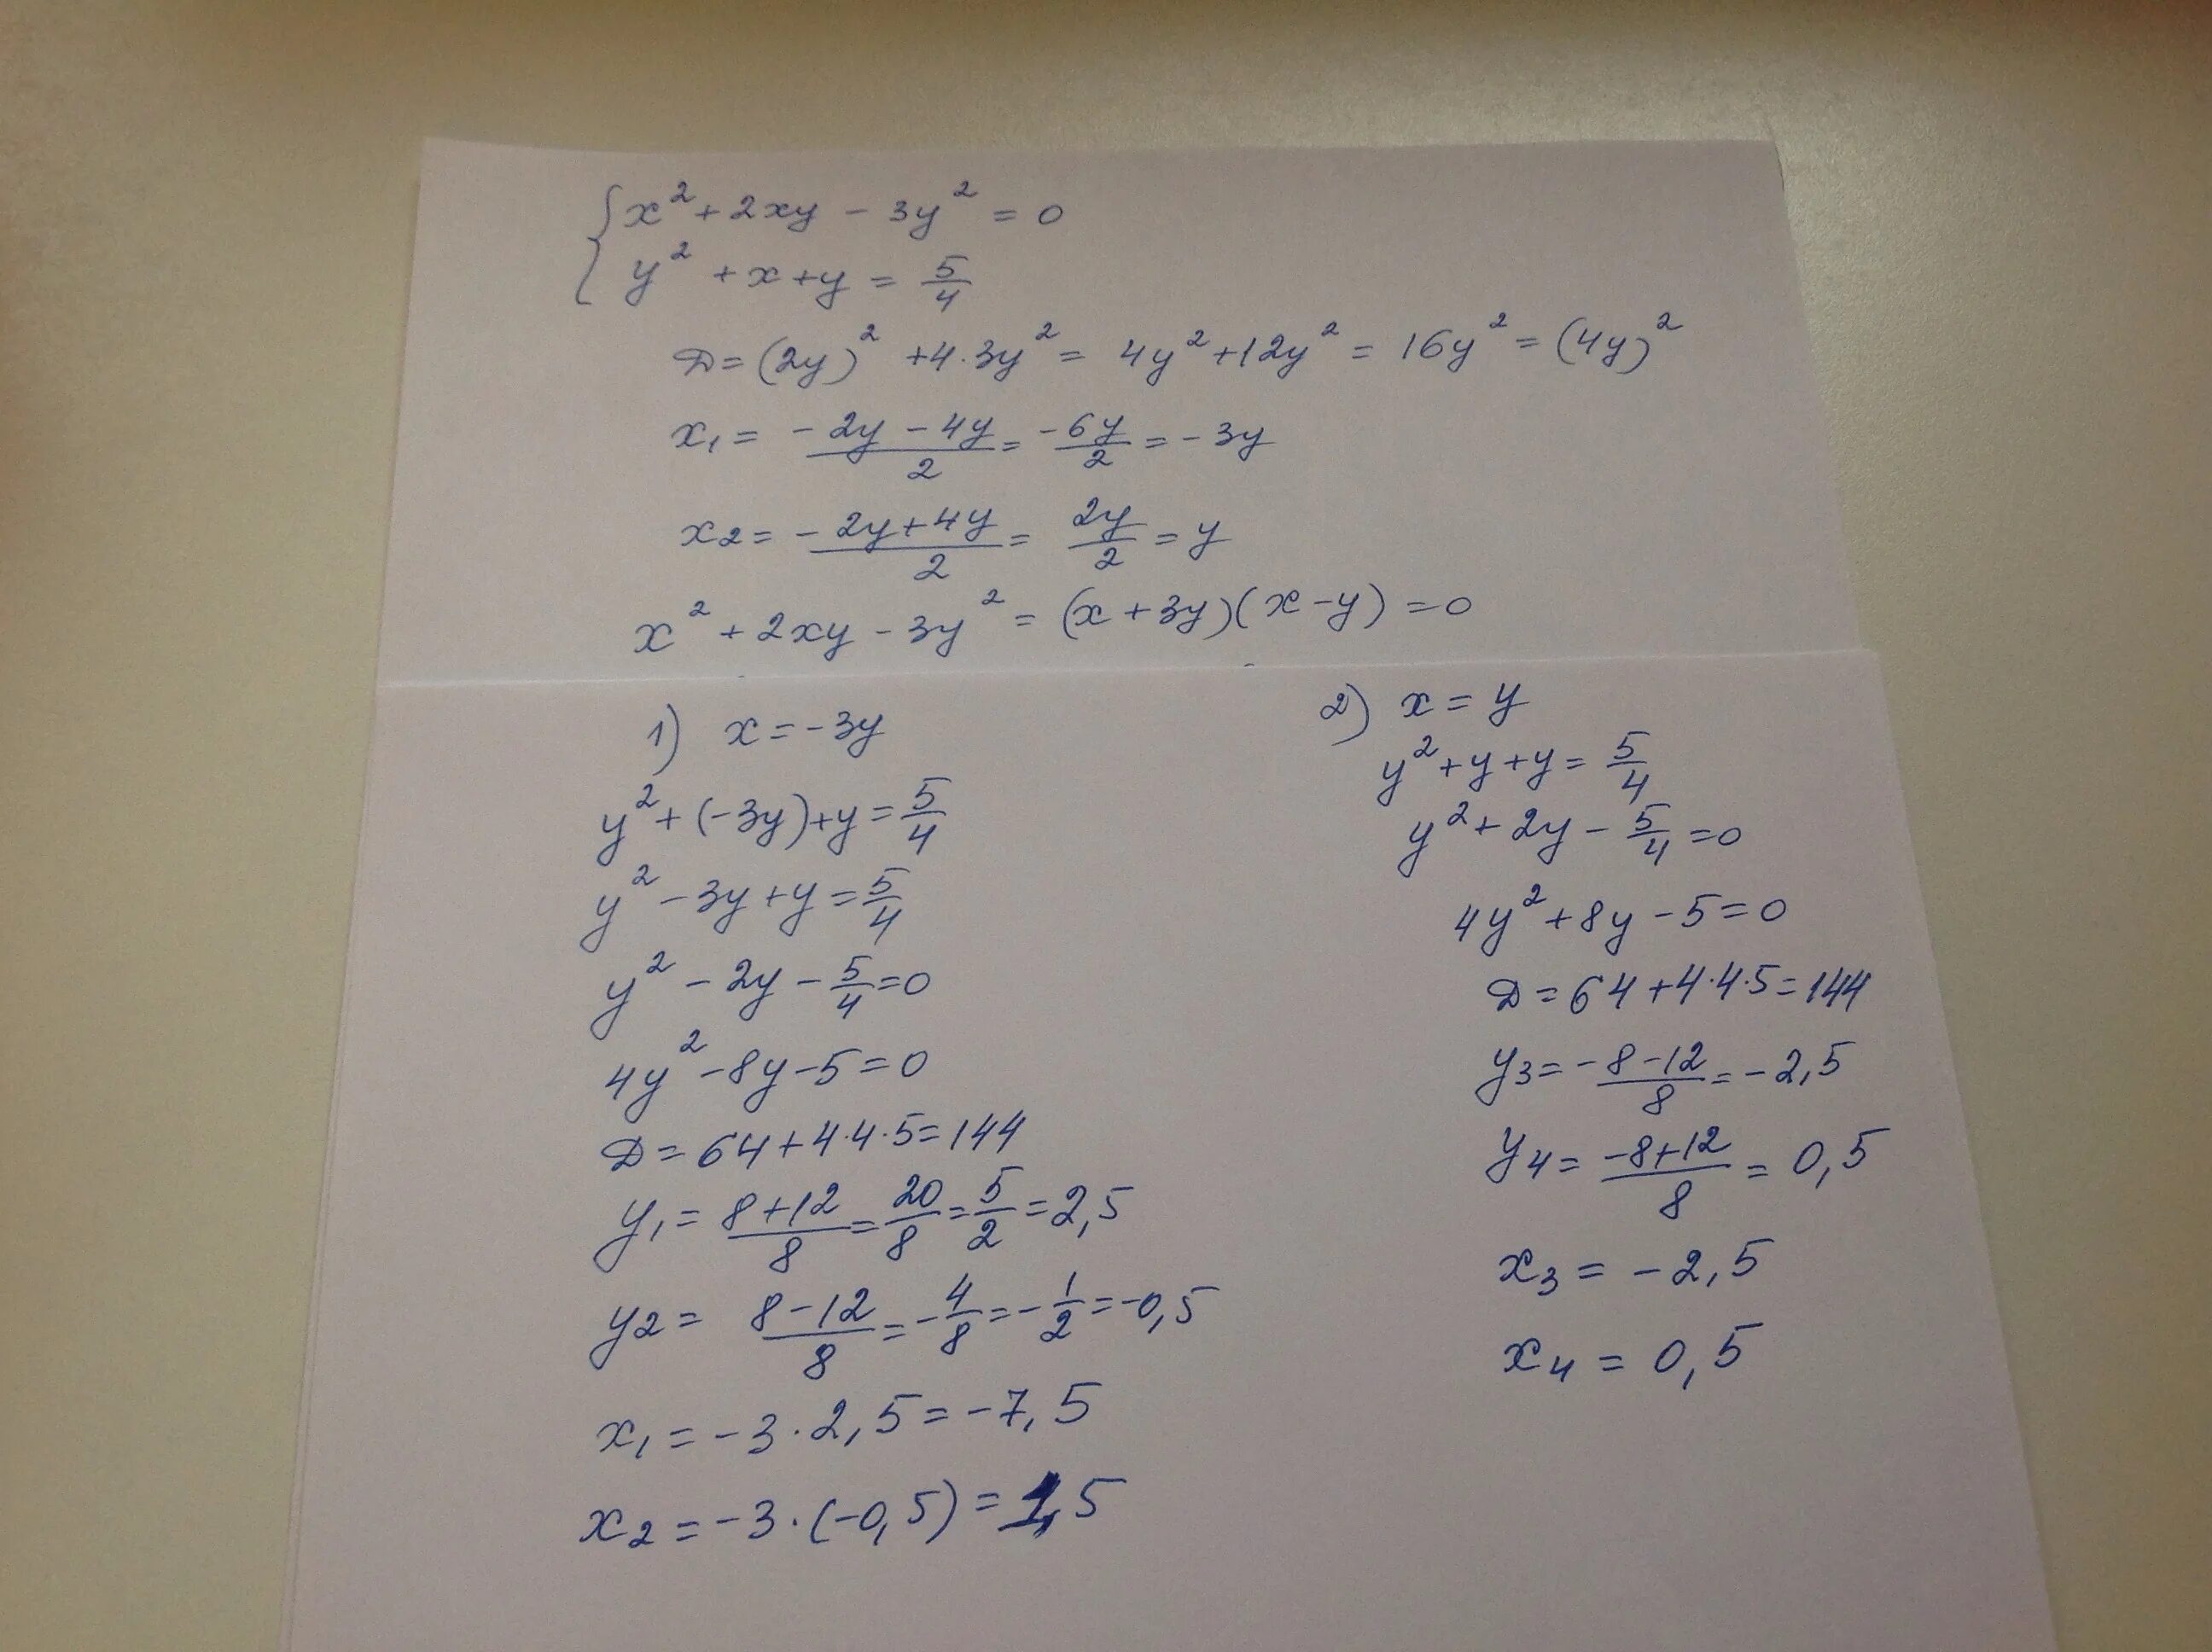 { x² + 2xy - 3y² = 0
y² + x + y = 5/4
D = (2y)² + 4·3y² = 4y² + 12y² = 16y² = (4y)²
x₁ = (-2y - 4y)/2 = -6y/2 = -3y
x₂ = (-2y + 4y)/2 = 2y/2 = y
x² + 2xy - 3y² = (x + 3y)(x - y) = 0
1) x = -3y
y² + (-3y) + y = 5/4
y² - 3y + y = 5/4
y² - 2y - 5/4 = 0
4y² - 8y - 5 = 0
D = 64 + 4·4·5 = 144
y₁ = (8 + 12)/8 = 20/8 = 5/2 = 2,5
y₂ = (8 - 12)/8 = -4/8 = -1/2 = -0,5
x₁ = -3·2,5 = -7,5
x₂ = -3·(-0,5) = 1,5
2) x = y
y² + y + y = 5/4
y² + 2y - 5/4 = 0
4y² + 8y - 5 = 0
D = 64 + 4·4·5 = 144
y₃ = (-8 - 12)/8 = -2,5
y₄ = (-8 + 12)/8 = 0,5
x₃ = -2,5
x₄ = 0,5